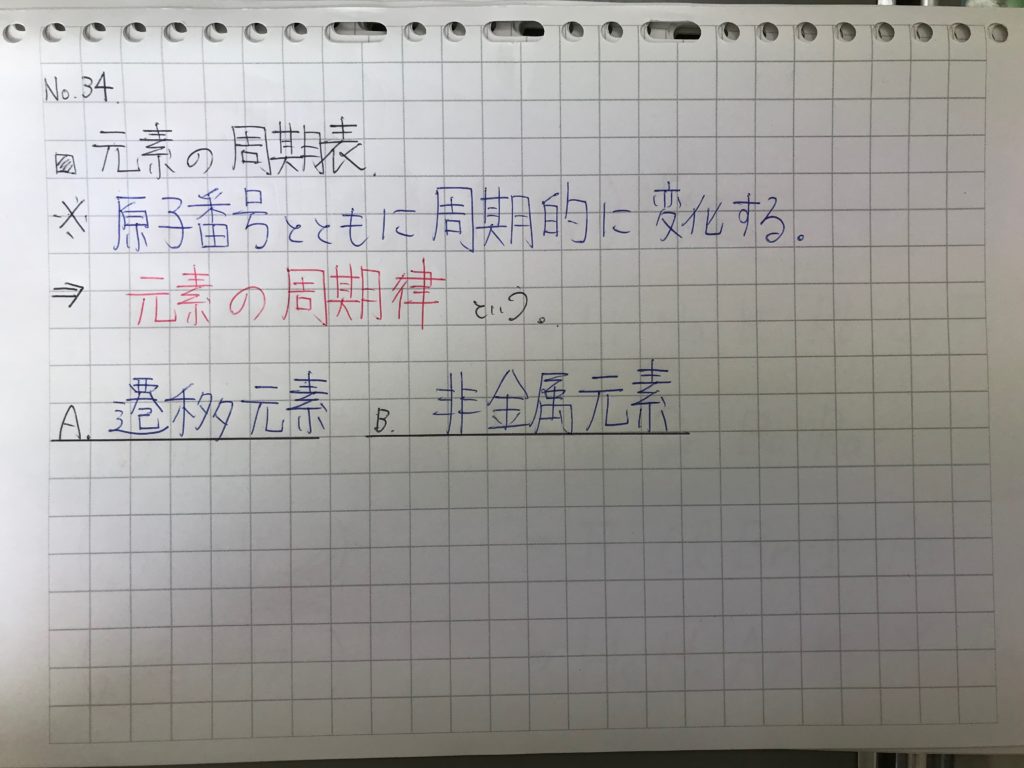 No.34.
▨ 元素の周期表.
※ 原子番号とともに周期的に変化する。
⇒ 元素の周期律 という。
A. 遷移元素 B. 非金属元素